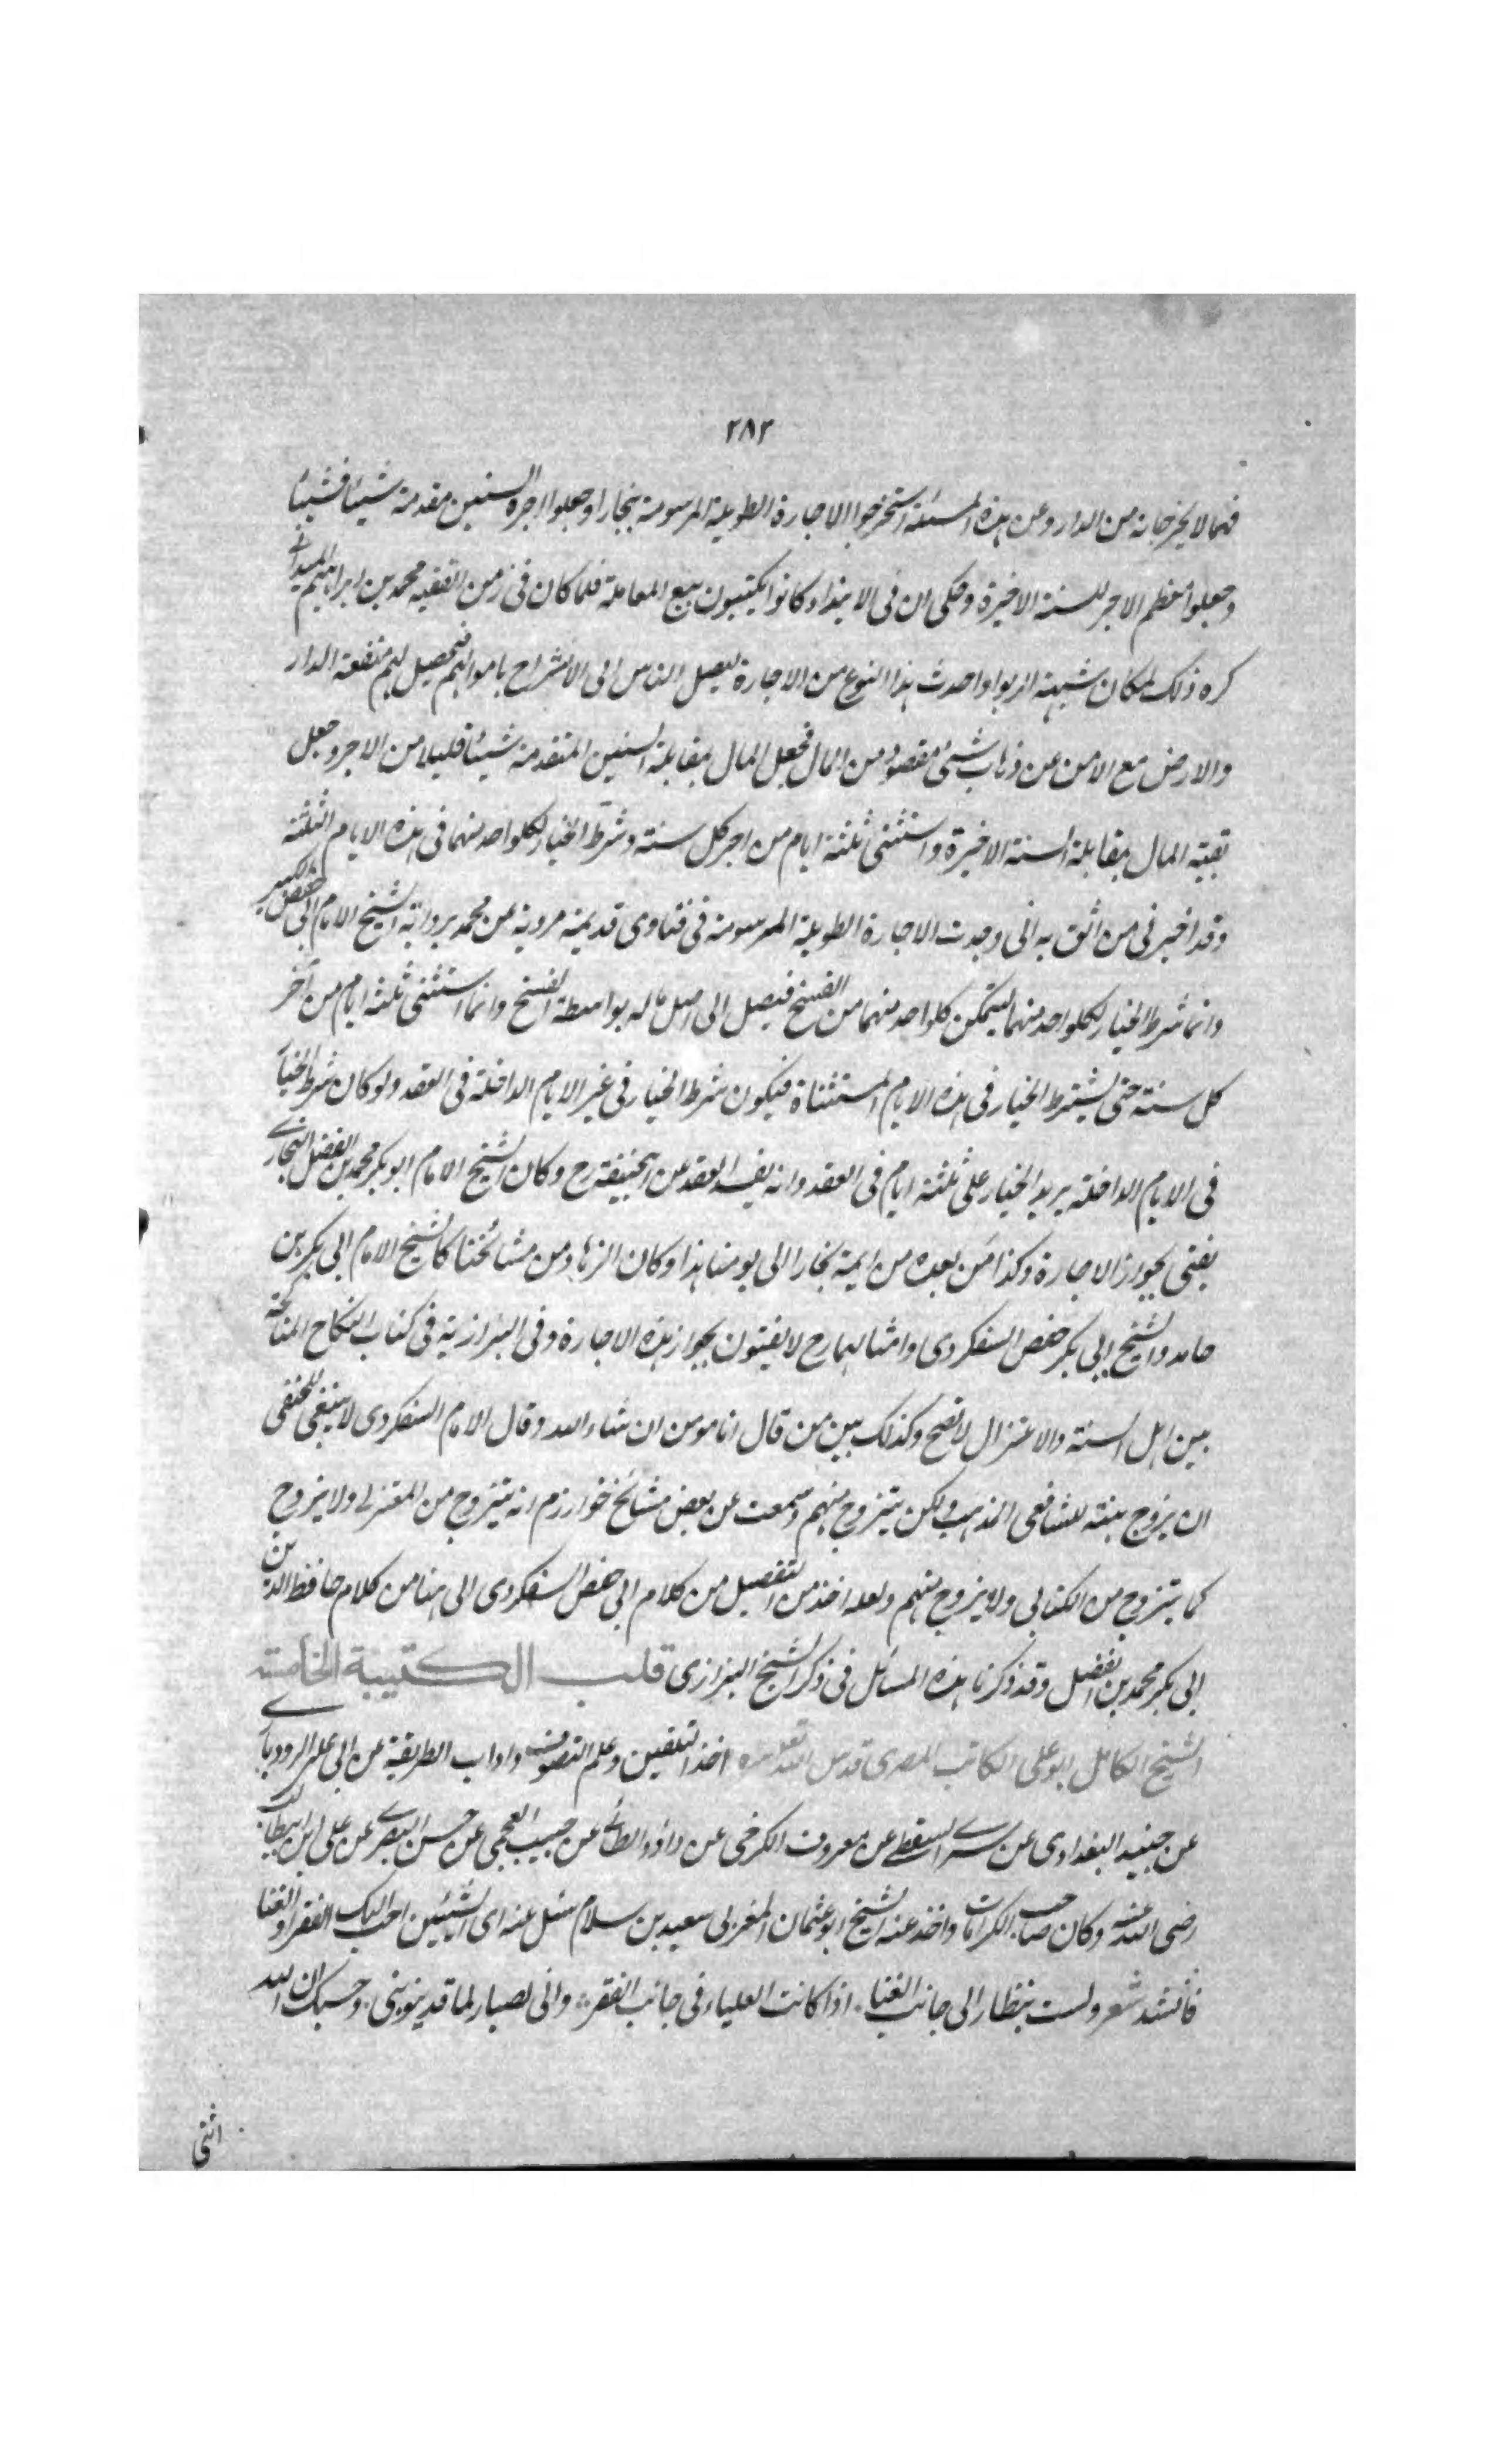 ٢٨٢
فهما لا يخرجانه من الدار وعن هذه المسئلة استخرجوا الاجارة الطويلة المرسومة ببخارا وجعلوا اجرة السنين مقدمة شيئا فشيئا
وجعلوا معظم الاجر للسنة الاخيرة وحكى ان فى الابتداء كانوا يكتبون بيع المعاملة فلما كان فى زمن الفقيه محمد بن ابراهيم الميدانى
كره ذلك لمكان شبهة الربوا واحدث هذا النوع من الاجارة ليصل الناس الى الاسترباح باموالهم فيحصل لهم منفعة الدار
والارض مع الامن عن ذهاب شئ مقصود من المال فجعل المال بمقابلة السنين المتقدمة شيئا قليلا من الاجر وجعل
بقية المال بمقابلة السنة الاخيرة واستثنى ثلثة ايام من اجر كل سنة وشرط الخيار لكلواحد منهما فى هذه الايام الثلثة
وقد اخبرنى من اثق به انى وجدت الاجارة الطويلة المرسومة فى فتاوى قديمة مروية عن محمد برواية الشيخ الامام ابى حفص الكبير
وانما شرط الخيار لكلواحد منهما ليتمكن كلواحد منهما من الفسخ فيصل الى اصل ماله بواسطة الفسخ وانما استثنى ثلثة ايام من آخر
كل سنة حتى يشترط الخيار فى هذه الايام المستثناة فيكون شرط الخيار فى غير الايام الداخلة فى العقد ولو كان شرط الخيار
فى الايام الداخلة يريد الخيار على ثلثة ايام فى العقد وانه يفسد العقد عن ابيحنيفة رح وكان الشيخ الامام ابو بكر محمد بن الفضل البخارى
يفتى بجواز الاجارة وكذا من بعده من ايمة بخارا الى يومنا هذا وكان الزهاد من مشائخنا كالشيخ الامام ابى بكر بن
حامد والشيخ ابى بكر حفص السفكردى وامثالهما رح لا يفتون بجواز هذه الاجارة وفى البزازية فى كتاب النكاح المناكحة
بين اهل السنة والاعتزال لا تصح وكذلك بين من قال انا مومن ان شاء الله وقال الامام السفكردى لا ينبغى للحنفى
ان يزوج بنته لشافعى المذهب ولكن يتزوج منهم وسمعت عن بعض مشائخ خوارزم انه يتزوج من المعتزلى ولا يزوج
كما يتزوج من الكتابى ولا يزوج منهم ولعله اخذ من التفصيل من كلام ابى حفص السفكردى الى هنا من كلام حافظ الدين
ابى بكر محمد بن الفضل وقد ذكرنا هذه المسائل فى ذكر الشيخ البزازى قلب الكتيبة الخامسة
الشيخ الكامل ابو على الكاتب المصرى قدس الله تعالى سره اخذ التلقين وعلم التصوف واداب الطريقة عن ابى على الرودبارى
عن جنيد البغدادى عن سرى السقطى عن معروف الكرخى عن داؤد الطائى عن حبيب العجمى عن حسن البصرى عن على ابن ابيطالب
رضى الله عنه وكان صاحب الكرامات واخذ عنه الشيخ ابو عثمان المغربى سعيد بن سلام سئل عنه اى الشيئين احب اليك الفقر او الغنا
فانشد شعر ولست بنظار الى جانب الغنا اذا كانت العلياء فى جانب الفقر وانى لصبار لما قد ينوبنى وحسبك ان الله
اثنى